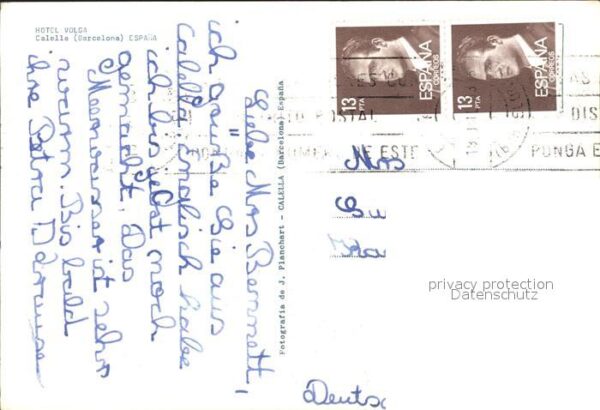 HOTEL VOLGA
Calella (Barcelona) ESPAÑA
Liebe Mrs Bennett,
ich grüße Sie aus
Calella. Englisch habe
ich bis jetzt noch
gemacht. Das
Meerwasser ist sehr
warm. Bis bald
ihre Petra
Fotografía de J. Planchart - CALELLA (Barcelona) España
13
PTA
ESPAÑA
CORREOS
13
PTA
ESPAÑA
CORREOS
POSTAL
DIS
PONGA E
ESTE
Mrs
privacy protection
Datenschutz
Deuts